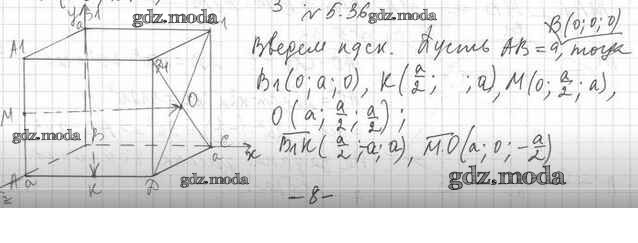 3 № 5.36 gdz.moda
Введем пдск. Пусть AB = a, тогда B(0; 0; 0)
B1(0; a; 0), K(a/2; ; a), M(0; a/2; a),
O(a; a/2; a/2);
B1K(a/2; -a; a), MO(a; 0; -a/2)
gdz.moda
y B1 gdz.moda
a
A1
D1
M
O
gdz.moda
B
C
a
x
A
a
K
D
gdz.moda
z
-8-